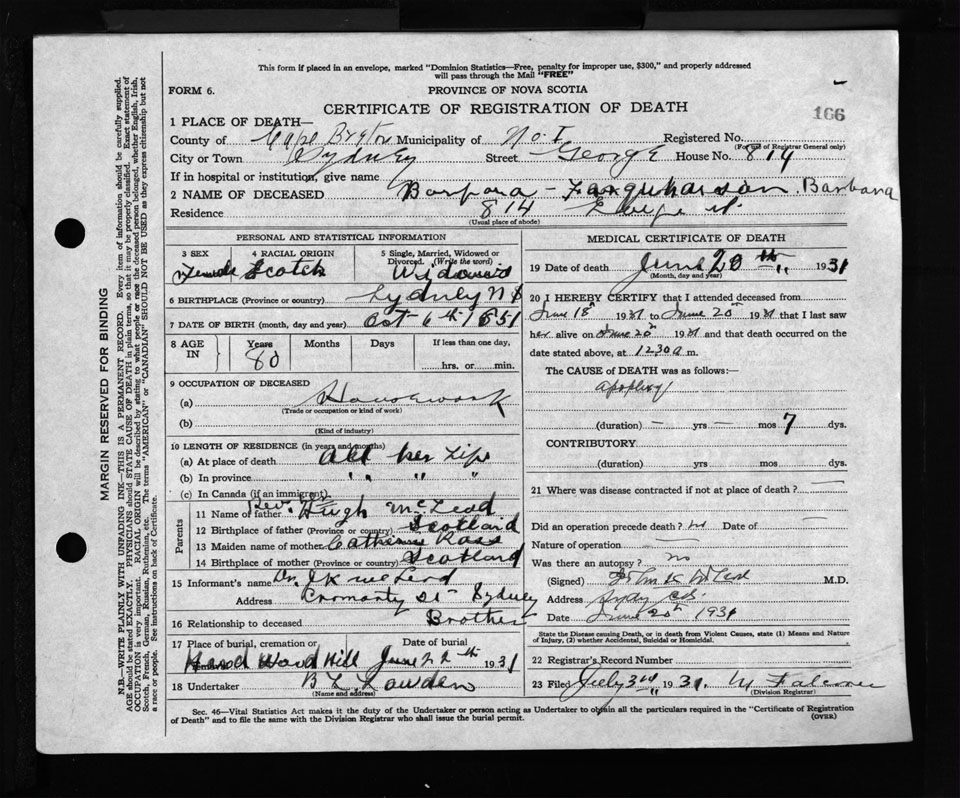 This form if placed in an envelope, marked "Dominion Statistics—Free, penalty for improper use, $300," and properly addressed
will pass through the Mail "FREE"
FORM 6.
PROVINCE OF NOVA SCOTIA
CERTIFICATE OF REGISTRATION OF DEATH
166
1 PLACE OF DEATH—
County of Cape Breton Municipality of No. I Registered No.
(For use of Registrar General only)
City or Town Sydney Street George House No. 814
If in hospital or institution, give name
2 NAME OF DECEASED Barbara - Farquharson. Barbara
Residence 814 George St.
(Usual place of abode)
PERSONAL AND STATISTICAL INFORMATION
3 SEX 4 RACIAL ORIGIN 5 Single, Married, Widowed or
Divorced. (Write the word)
Female Scotch Widowed
6 BIRTHPLACE (Province or country) Sydney NS
7 DATE OF BIRTH (month, day and year) Oct 6th 1851
8 AGE IN Years Months Days If less than one day,
80 hrs. or min.
9 OCCUPATION OF DECEASED
(a) Housework
(Trade or occupation or kind of work)
(b)
(Kind of industry)
10 LENGTH OF RESIDENCE (in years and months)
(a) At place of death All her Life
(b) In province " " "
(c) In Canada (if an immigrant)
Parents
11 Name of father Rev. Hugh McLeod
12 Birthplace of father (Province or country) Scotland
13 Maiden name of mother Catherine Ross
14 Birthplace of mother (Province or country) Scotland
15 Informant's name Dr. J K McLeod
Address Cromarty St Sydney
16 Relationship to deceased Brother
17 Place of burial, cremation or Date of burial
Hard Wood Hill June 22th 1931
18 Undertaker B L Lowden
(Name and address)
MEDICAL CERTIFICATE OF DEATH
19 Date of death June 20th 1931
(Month, day and year)
20 I HEREBY CERTIFY that I attended deceased from
June 18th 1931 to June 20th 1931 that I last saw
her alive on June 20th 1931 and that death occurred on the
date stated above, at 12.30 a m.
The CAUSE of DEATH was as follows:—
apoplexy
(duration) — yrs — mos 7 dys.
CONTRIBUTORY
(duration) yrs. mos. dys.
21 Where was disease contracted if not at place of death? —
Did an operation precede death? no Date of —
Nature of operation —
Was there an autopsy? no
(Signed) John K McLeod M.D.
Address Sydney C.B.
Date June 20th 1931
State the Disease causing Death, or in death from Violent Causes, state (1) Means and Nature
of Injury, (2) whether Accidental, Suicidal or Homicidal.
22 Registrar's Record Number
23 Filed July 3rd 1931. M Falconer
(Division Registrar)
Sec. 46—Vital Statistics Act makes it the duty of the Undertaker or person acting as Undertaker to obtain all the particulars required in the "Certificate of Registration
of Death" and to file the same with the Division Registrar who shall issue the burial permit. (OVER)
MARGIN RESERVED FOR BINDING
N.B.—WRITE PLAINLY WITH UNFADING INK—THIS IS A PERMANENT RECORD. Every item of information should be carefully supplied.
AGE should be stated EXACTLY. PHYSICIANS should STATE CAUSE OF DEATH in plain terms, so that it may be properly classified. Exact statement of
OCCUPATION is very important. RACIAL ORIGIN will be described by stating to what people or race the deceased person belonged, whether English, Irish,
Scotch, French, German, Russian, Ruthenian, etc. The terms "AMERICAN" or "CANADIAN" SHOULD NOT BE USED as they express citizenship but not
a race or people. See instructions on back of Certificate.